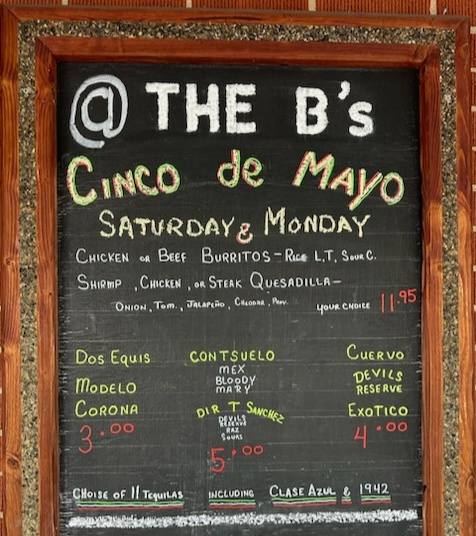 @ THE B's
CINCO de MAYO
SATURDAY & MONDAY
CHICKEN OR BEEF BURRITOS - RICE L.T, SOUR C.
SHIRMP , CHICKEN , OR STEAK QUESADILLA -
ONION, TOM., JALAPEÑO, CHEDDAR, YOUR CHOICE 11.95
DOS EQUIS
MODELO
CORONA
3.00
CONTSUELO
MEX
BLOODY
MARY
DIR T SANCHEZ
DEVILS
RESERVE
RAZ
SOURS
5.00
CUERVO
DEVILS
RESERVE
EXOTICO
4.00
CHOISE OF 11 TEQUILAS INCLUDING CLASE AZUL & 1942